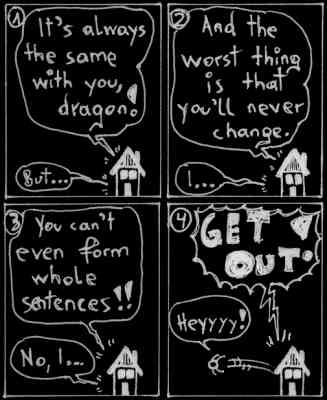 1
It's always
the same
with you,
dragon!
But...
2
And the
worst thing
is that
you'll never
change.
I...
3
You can't
even form
whole
sentences!!
No, I...
4
GET
OUT!
Heyyyy!